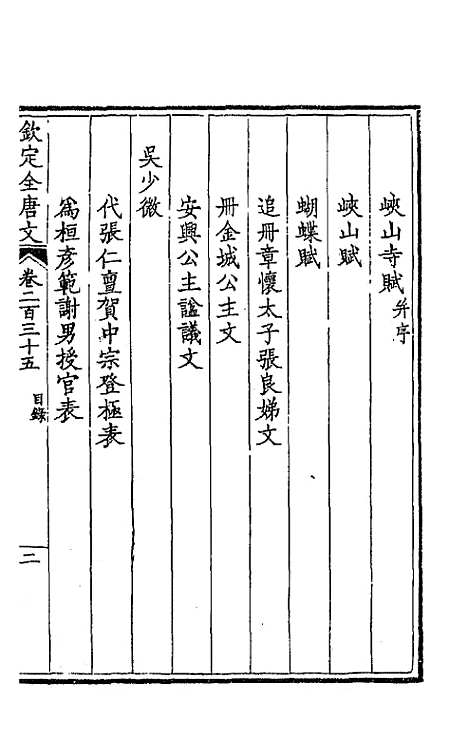 峽山寺賦 并序
峽山賦
蝴蝶賦
追冊章懷太子張良娣文
冊金城公主文
安興公主謚議文
吳少微
代張仁亶賀中宗登極表
為桓彥範謝男授官表
欽定全唐文 卷二百三十五 目錄 二